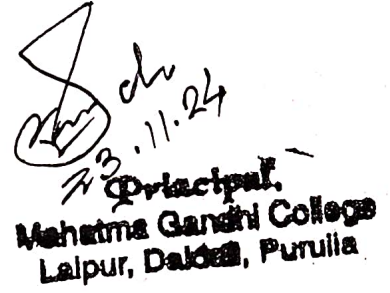 23.11.24
Principal,
Mahatma Gandhi College
Lalpur, Daldali, Purulia